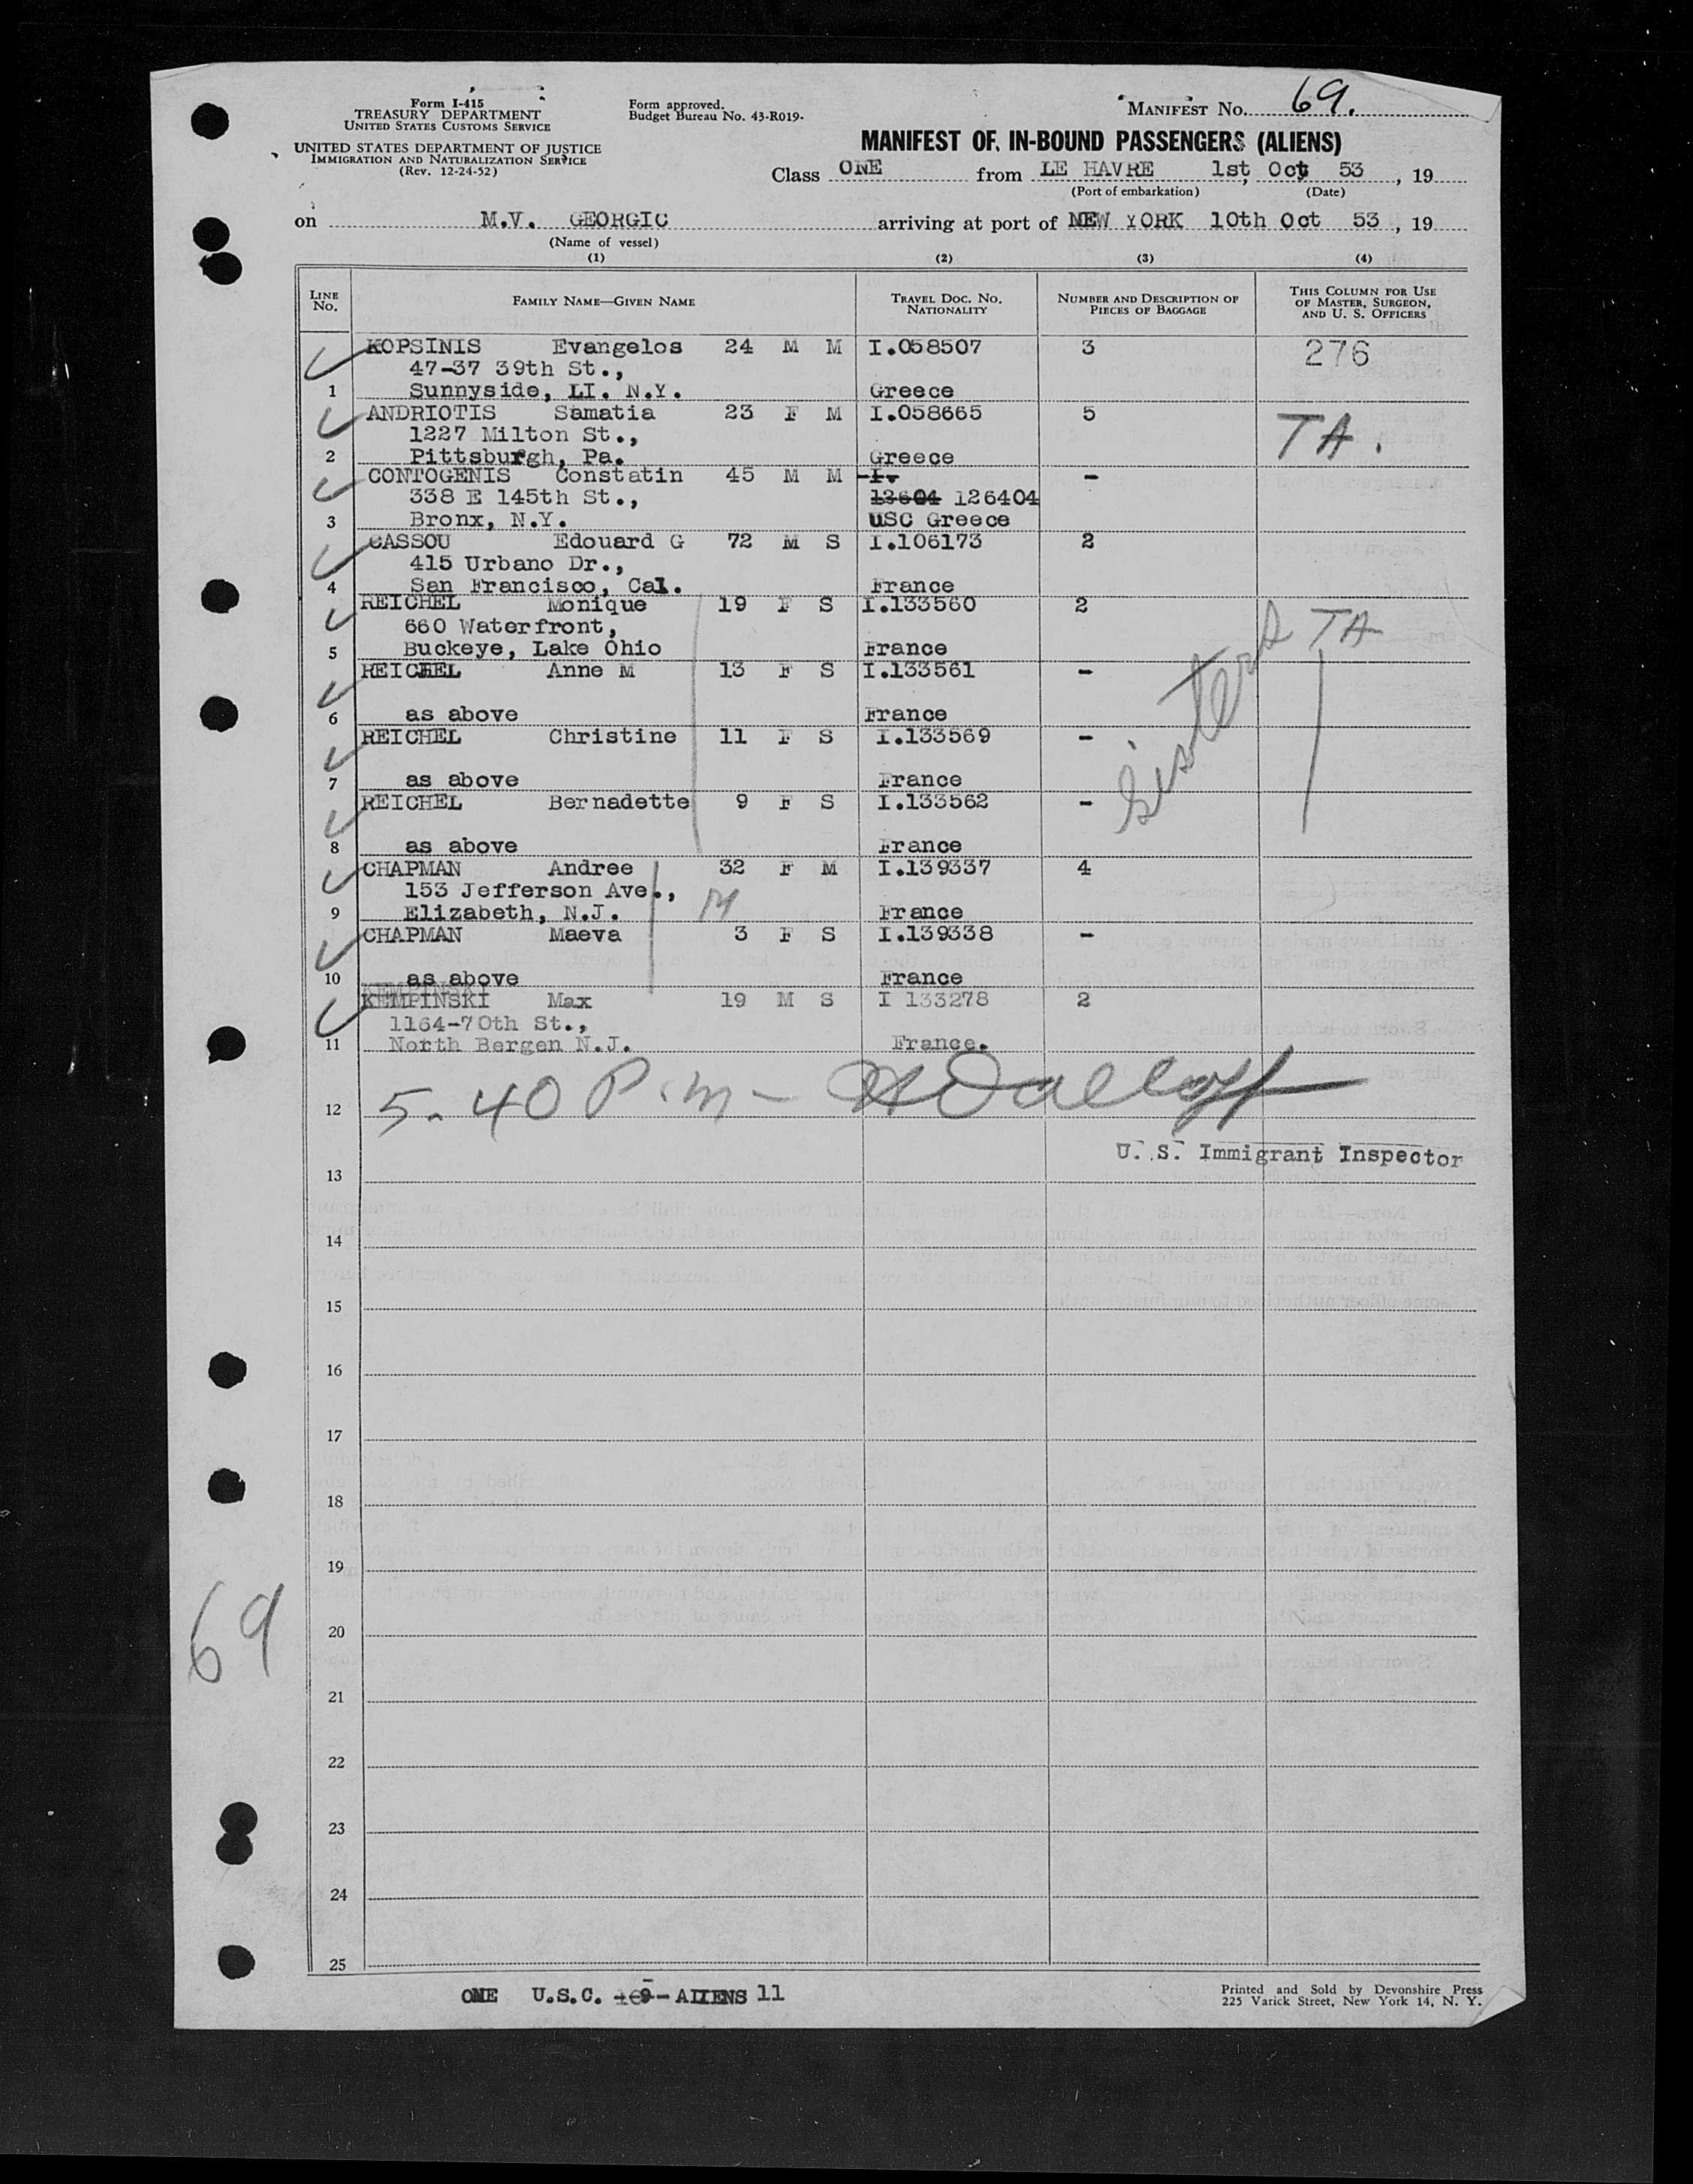 Form I-415
TREASURY DEPARTMENT
UNITED STATES CUSTOMS SERVICE
UNITED STATES DEPARTMENT OF JUSTICE
IMMIGRATION AND NATURALIZATION SERVICE
(Rev. 12-24-52)
Form approved.
Budget Bureau No. 43-R019.
MANIFEST NO. 69.
MANIFEST OF IN-BOUND PASSENGERS (ALIENS)
Class ONE from LE HAVRE 1st, Oct 53, 19
(Port of embarkation) (Date)
on M.V. GEORGIC arriving at port of NEW YORK 10th Oct 53, 19
(Name of vessel)
(1) (2) (3) (4)
LINE NO. FAMILY NAME—GIVEN NAME TRAVEL DOC. NO. NATIONALITY NUMBER AND DESCRIPTION OF PIECES OF BAGGAGE THIS COLUMN FOR USE OF MASTER, SURGEON, AND U. S. OFFICERS
KOPSINIS Evangelos 24 M M I.058507 3 276
47-37 39th St.,
1 Sunnyside, LI. N.Y. Greece
ANDRIOTIS Samatia 23 F M I.058665 5 TA.
1227 Milton St.,
2 Pittsburgh, Pa. Greece
CONTOGENIS Constatin 45 M M I. -
338 E 145th St., 12604 126404
3 Bronx, N.Y. USC Greece
CASSOU Edouard G 72 M S I.106173 2
415 Urbano Dr.,
4 San Francisco, Cal. France
REICHEL Monique 19 F S I.133560 2 Sisters TA
660 Waterfront,
5 Buckeye, Lake Ohio France
REICHEL Anne M 13 F S I.133561 -
6 as above France
REICHEL Christine 11 F S I.133569 -
7 as above France
REICHEL Bernadette 9 F S I.133562 -
8 as above France
CHAPMAN Andree 32 F M I.139337 4
153 Jefferson Ave.,
9 Elizabeth, N.J. France
CHAPMAN Maeva 3 F S I.139338 -
10 as above France
KEMPINSKI Max 19 M S I 133278 2
1164-70th St.,
11 North Bergen N.J. France.
12 5.40 P.m -
U. S. Immigrant Inspector
13
14
15
16
17
18
19
69
20
21
22
23
24
25
ONE U.S.C. ALIENS 11
Printed and Sold by Devonshire Press
225 Varick Street, New York 14, N. Y.